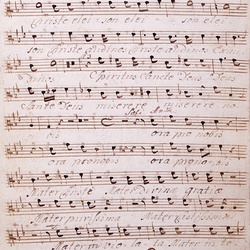 Christe elei son elei son elei
son Christe audi nos Christe audi nos Exaudi
nos Spiritus Sancte Deus Deus
Sancte Deus miserere miserere no
bis Solo ora pro nobis
ora pro nobis ora pro nobis
Mater Christe Mater Divinae gratiae
Mater purissima Mater castissima
Mater inviola ta Mater in te